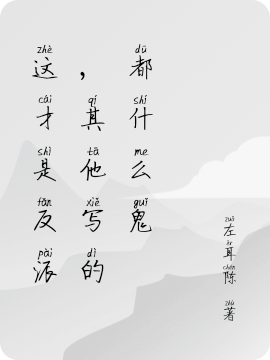 zhè cái shì fǎn pài
这才是反派
qí tā xiě dì
，其他写的
dū shí me guǐ
都什么鬼
zuǒ ěr chén zhù
左耳陈 著